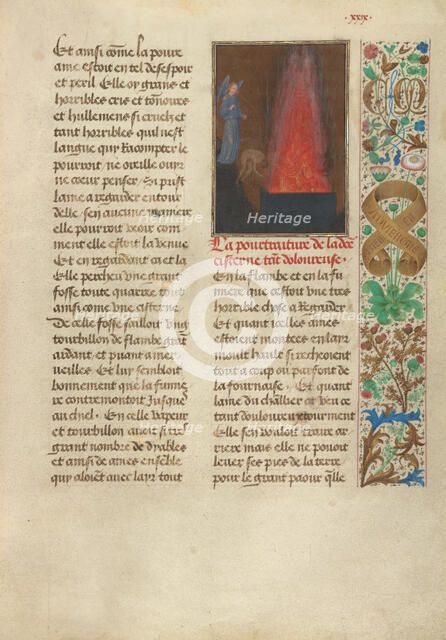 xxix
Et ainsi cõme la poure
ame estoit en tel desespoir
et peril Elle oy grans et
horribles cris et tõnoires
et hullemens si cruelz et
tant horribles quil nest
langue quy Racompter le
pourroit / ne oreille ouyr
ne coeur penser / Si prist
lame a regarder entour
delle / sen aucune maniere
elle pourroit veoir com-
ment elle estoit la venue
Et en regardant ca et la
Elle percheu vne grant
fosse toute quarree tout
ainsi comme vne cisterne
De celle fosse sailloit vng
tourbillon de flambe grãt
ardant / et puant a mer-
ueilles Et luy sembloit
bonnement que la fumee
contremontoit Jusque
au chiel / En celle vapeur
et tourbillon auoit si tres
grant nombre de dyables
et ainsi de ames ensemble
quy aloiẽt auec lair tout
La pourtraiture de ladcẽ
cisterne tãt doloureuse
En la flambe et en la fu-
miere que cestoit vne tres
horrible chose a Regarder
Et quant icelles ames
estoient montees en lair
moult hault si recheoient
tout a coup ou parfont de
la fournaise / Et quant
lame du chllier et veu ce
tant douloureux tourment
Elle sen vouloit traire ar-
riere mais elle ne pouoit
leuer ses pies de la terre
pour le grant paour q̃lle
C M
Heritage
Heritage
Heritage
Heritage
Heritage
Heritage